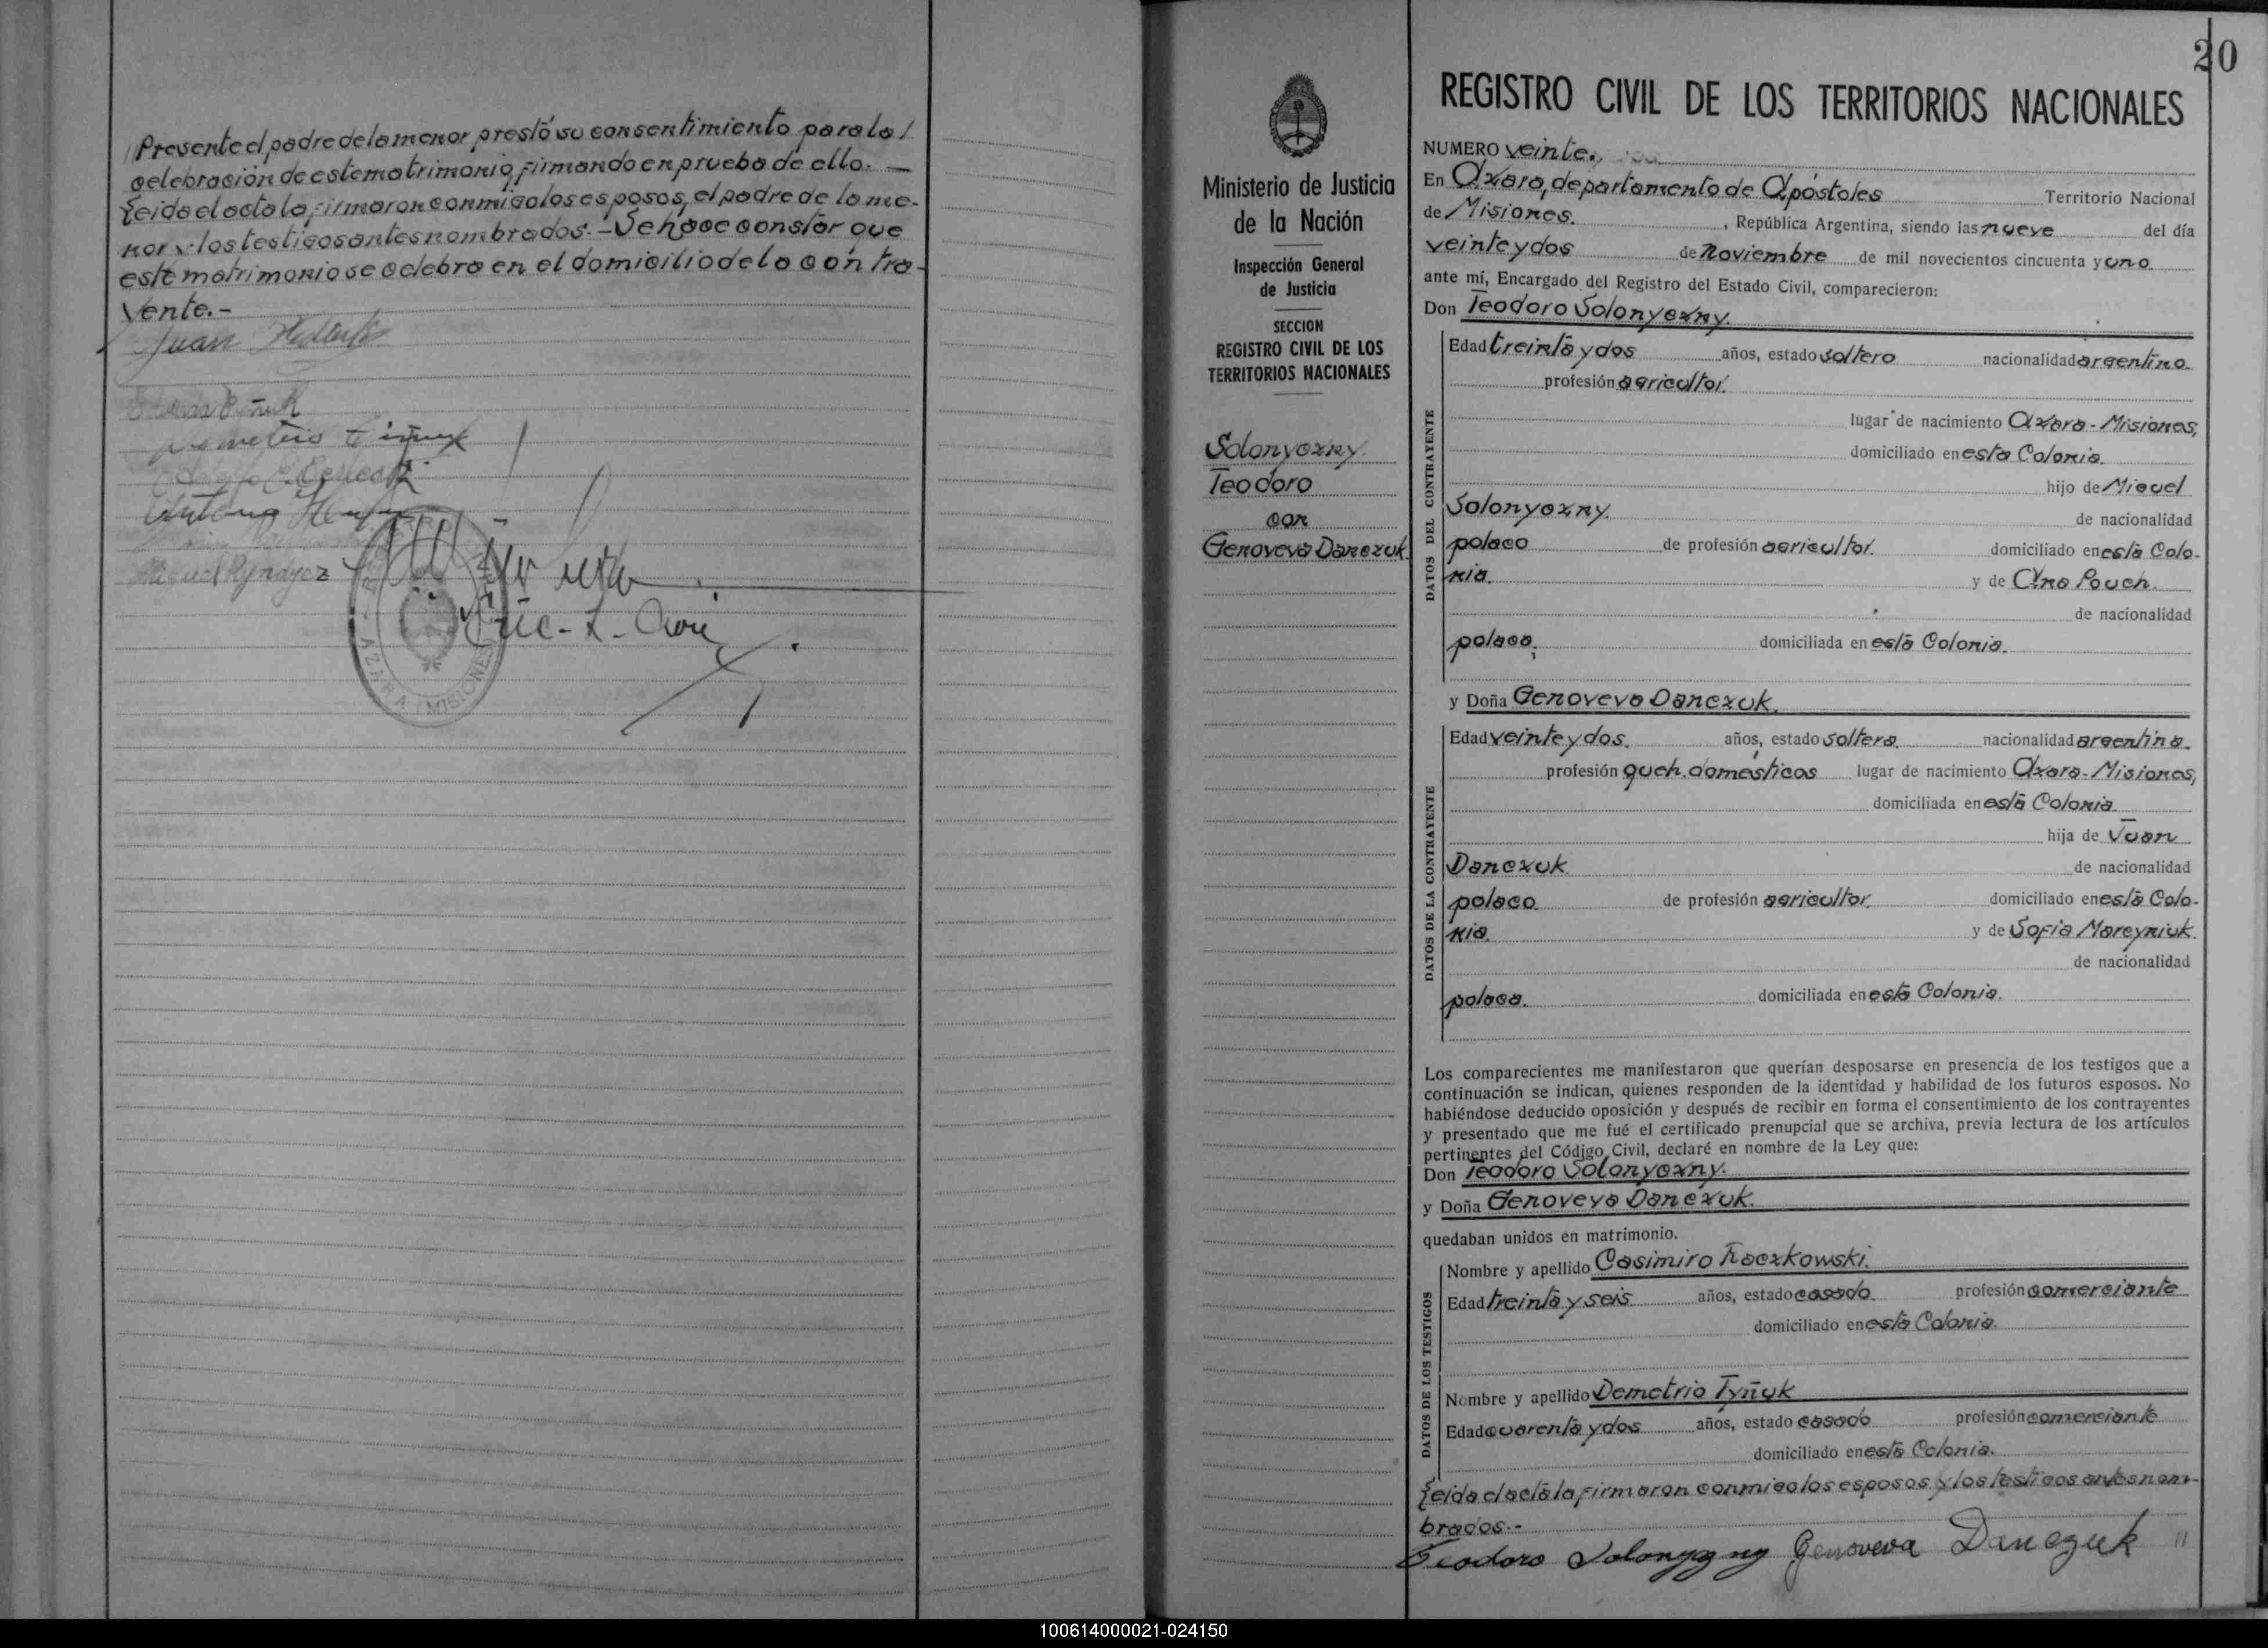 Presente el padre de la menor, prestó su consentimiento para la
celebración de este matrimonio, firmando en prueba de ello. —
Leida el acta la firmaron conmigo los esposos, el padre de la me-
nor y los testigos antes nombrados.- Se hace constar que
este matrimonio se celebra en el domicilio de la contra-
yente.-
Juan
Demetrio
Antonio
Miguel Rynaycz
AZARA MISIONES
20
REGISTRO CIVIL DE LOS TERRITORIOS NACIONALES
Ministerio de Justicia
de la Nación
Inspección General
de Justicia
SECCION
REGISTRO CIVIL DE LOS
TERRITORIOS NACIONALES
Solonyczny
Teodoro
con
Genoveva Danczuk
NUMERO veinte.
En Azara, departamento de Apóstoles Territorio Nacional
de Misiones. , República Argentina, siendo las nueve del día
veinte y dos de Noviembre de mil novecientos cincuenta y uno
ante mí, Encargado del Registro del Estado Civil, comparecieron:
Don Teodoro Solonyczny.
DATOS DEL CONTRAYENTE
Edad treinta y dos años, estado soltero nacionalidad argentino.
profesión agricultor.
lugar de nacimiento Azara - Misiones,
domiciliado en esta Colonia.
hijo de Miguel
Solonyczny. de nacionalidad
polaco de profesión agricultor. domiciliado en esta Colo-
nia. y de Ana Pouch.
de nacionalidad
polaca, domiciliada en esta Colonia.
y Doña Genoveva Danczuk.
DATOS DE LA CONTRAYENTE
Edad veinte y dos. años, estado soltera. nacionalidad argentina.
profesión queh. domésticos lugar de nacimiento Azara - Misiones,
domiciliada en esta Colonia.
hija de Juan
Danczuk. de nacionalidad
polaco. de profesión agricultor. domiciliado en esta Colo-
nia. y de Sofia Marcyniuk.
de nacionalidad
polaca. domiciliada en esta Colonia.
Los comparecientes me manifestaron que querían desposarse en presencia de los testigos que a
continuación se indican, quienes responden de la identidad y habilidad de los futuros esposos. No
habiéndose deducido oposición y después de recibir en forma el consentimiento de los contrayentes
y presentado que me fué el certificado prenupcial que se archiva, previa lectura de los artículos
pertinentes del Código Civil, declaré en nombre de la Ley que:
Don Teodoro Solonyczny.
y Doña Genoveva Danczuk.
quedaban unidos en matrimonio.
DATOS DE LOS TESTIGOS
Nombre y apellido Casimiro Raczkowski.
Edad treinta y seis años, estado casado profesión comerciante
domiciliado en esta Colonia.
Nombre y apellido Demetrio Tyñuk
Edad cuarenta y dos años, estado casado profesión comerciante
domiciliado en esta Colonia.
Leida el acta la firmaron conmigo los esposos y los testigos antes nom-
brados.-
Teodoro Solonyczny Genoveva Danczuk
100614000021-024150